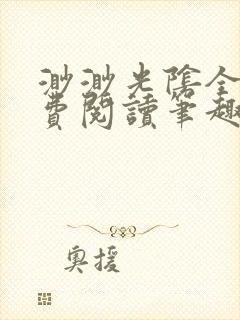 渺渺光陰全
費閱讀筆趣
奧援